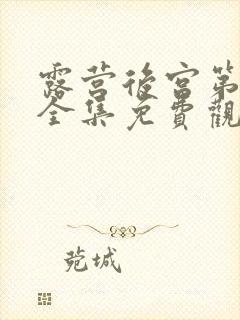 露营後宫第
全集免費觀
苑城